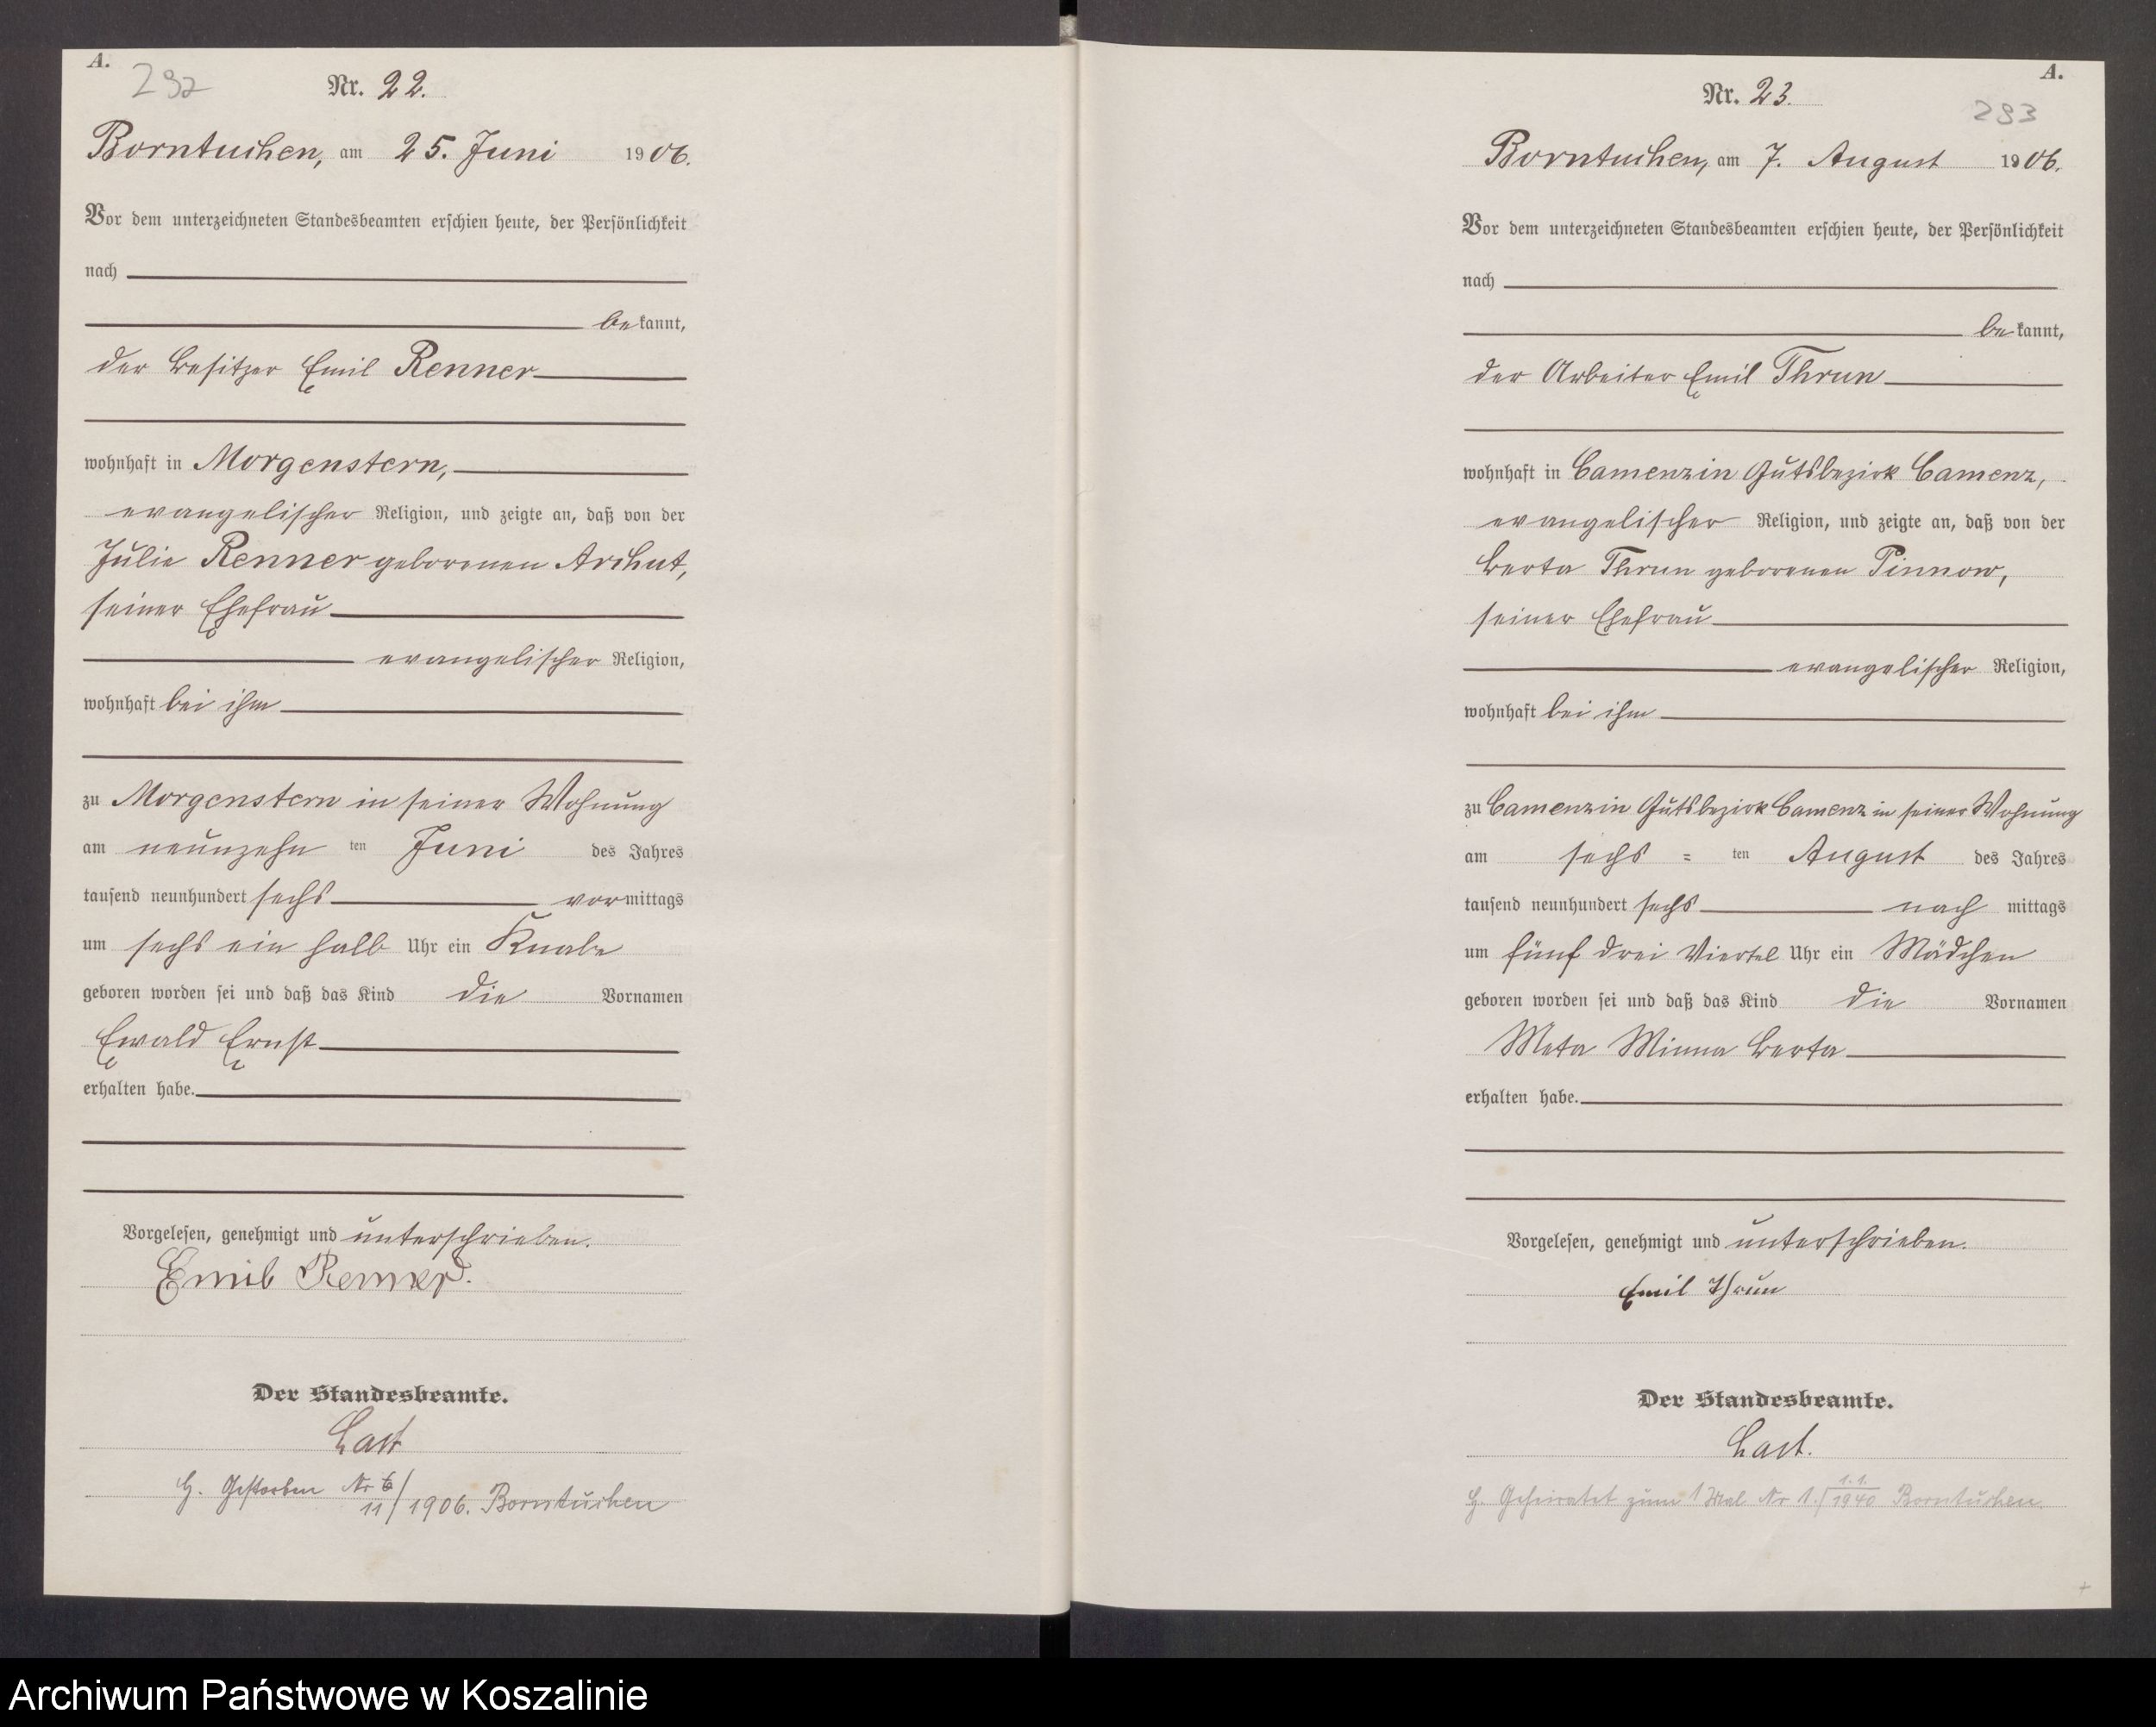 A.
292
Nr. 22.
Borntuchen, am 25. Juni 1906.
Vor dem unterzeichneten Standesbeamten erschien heute, der Persönlichkeit
nach
bekannt,
der Besitzer Emil Renner
wohnhaft in Morgenstern,
evangelischer Religion, und zeigte an, daß von der
Julie Renner geborenen Archut,
seiner Ehefrau
evangelischer Religion,
wohnhaft bei ihm
zu Morgenstern in seiner Wohnung
am neunzehnten Juni des Jahres
tausend neunhundert sechs vormittags
um sechs ein halb Uhr ein Knabe
geboren worden sei und daß das Kind die Vornamen
Ewald Ernst
erhalten habe.
Vorgelesen, genehmigt und unterschrieben.
Emil Renner.
Der Standesbeamte.
Last
G. Gestorben Nr 6
11/1906. Borntuchen
A.
293
Nr. 23.
Borntuchen, am 7. August 1906.
Vor dem unterzeichneten Standesbeamten erschien heute, der Persönlichkeit
nach
bekannt,
der Arbeiter Emil Thrun
wohnhaft in Camenzin Gutsbezirk Camenz,
evangelischer Religion, und zeigte an, daß von der
Berta Thrun geborenen Pinnow,
seiner Ehefrau
evangelischer Religion,
wohnhaft bei ihm
zu Camenzin Gutsbezirk Camenz in seiner Wohnung
am sechs = ten August des Jahres
tausend neunhundert sechs nachmittags
um fünf drei Viertel Uhr ein Mädchen
geboren worden sei und daß das Kind die Vornamen
Meta Minna Berta
erhalten habe.
Vorgelesen, genehmigt und unterschrieben.
Emil Thrun
Der Standesbeamte.
Last.
G. Geheiratet zum 1 Mal Nr 1./1.1.1940 Borntuchen.
Archiwum Państwowe w Koszalinie